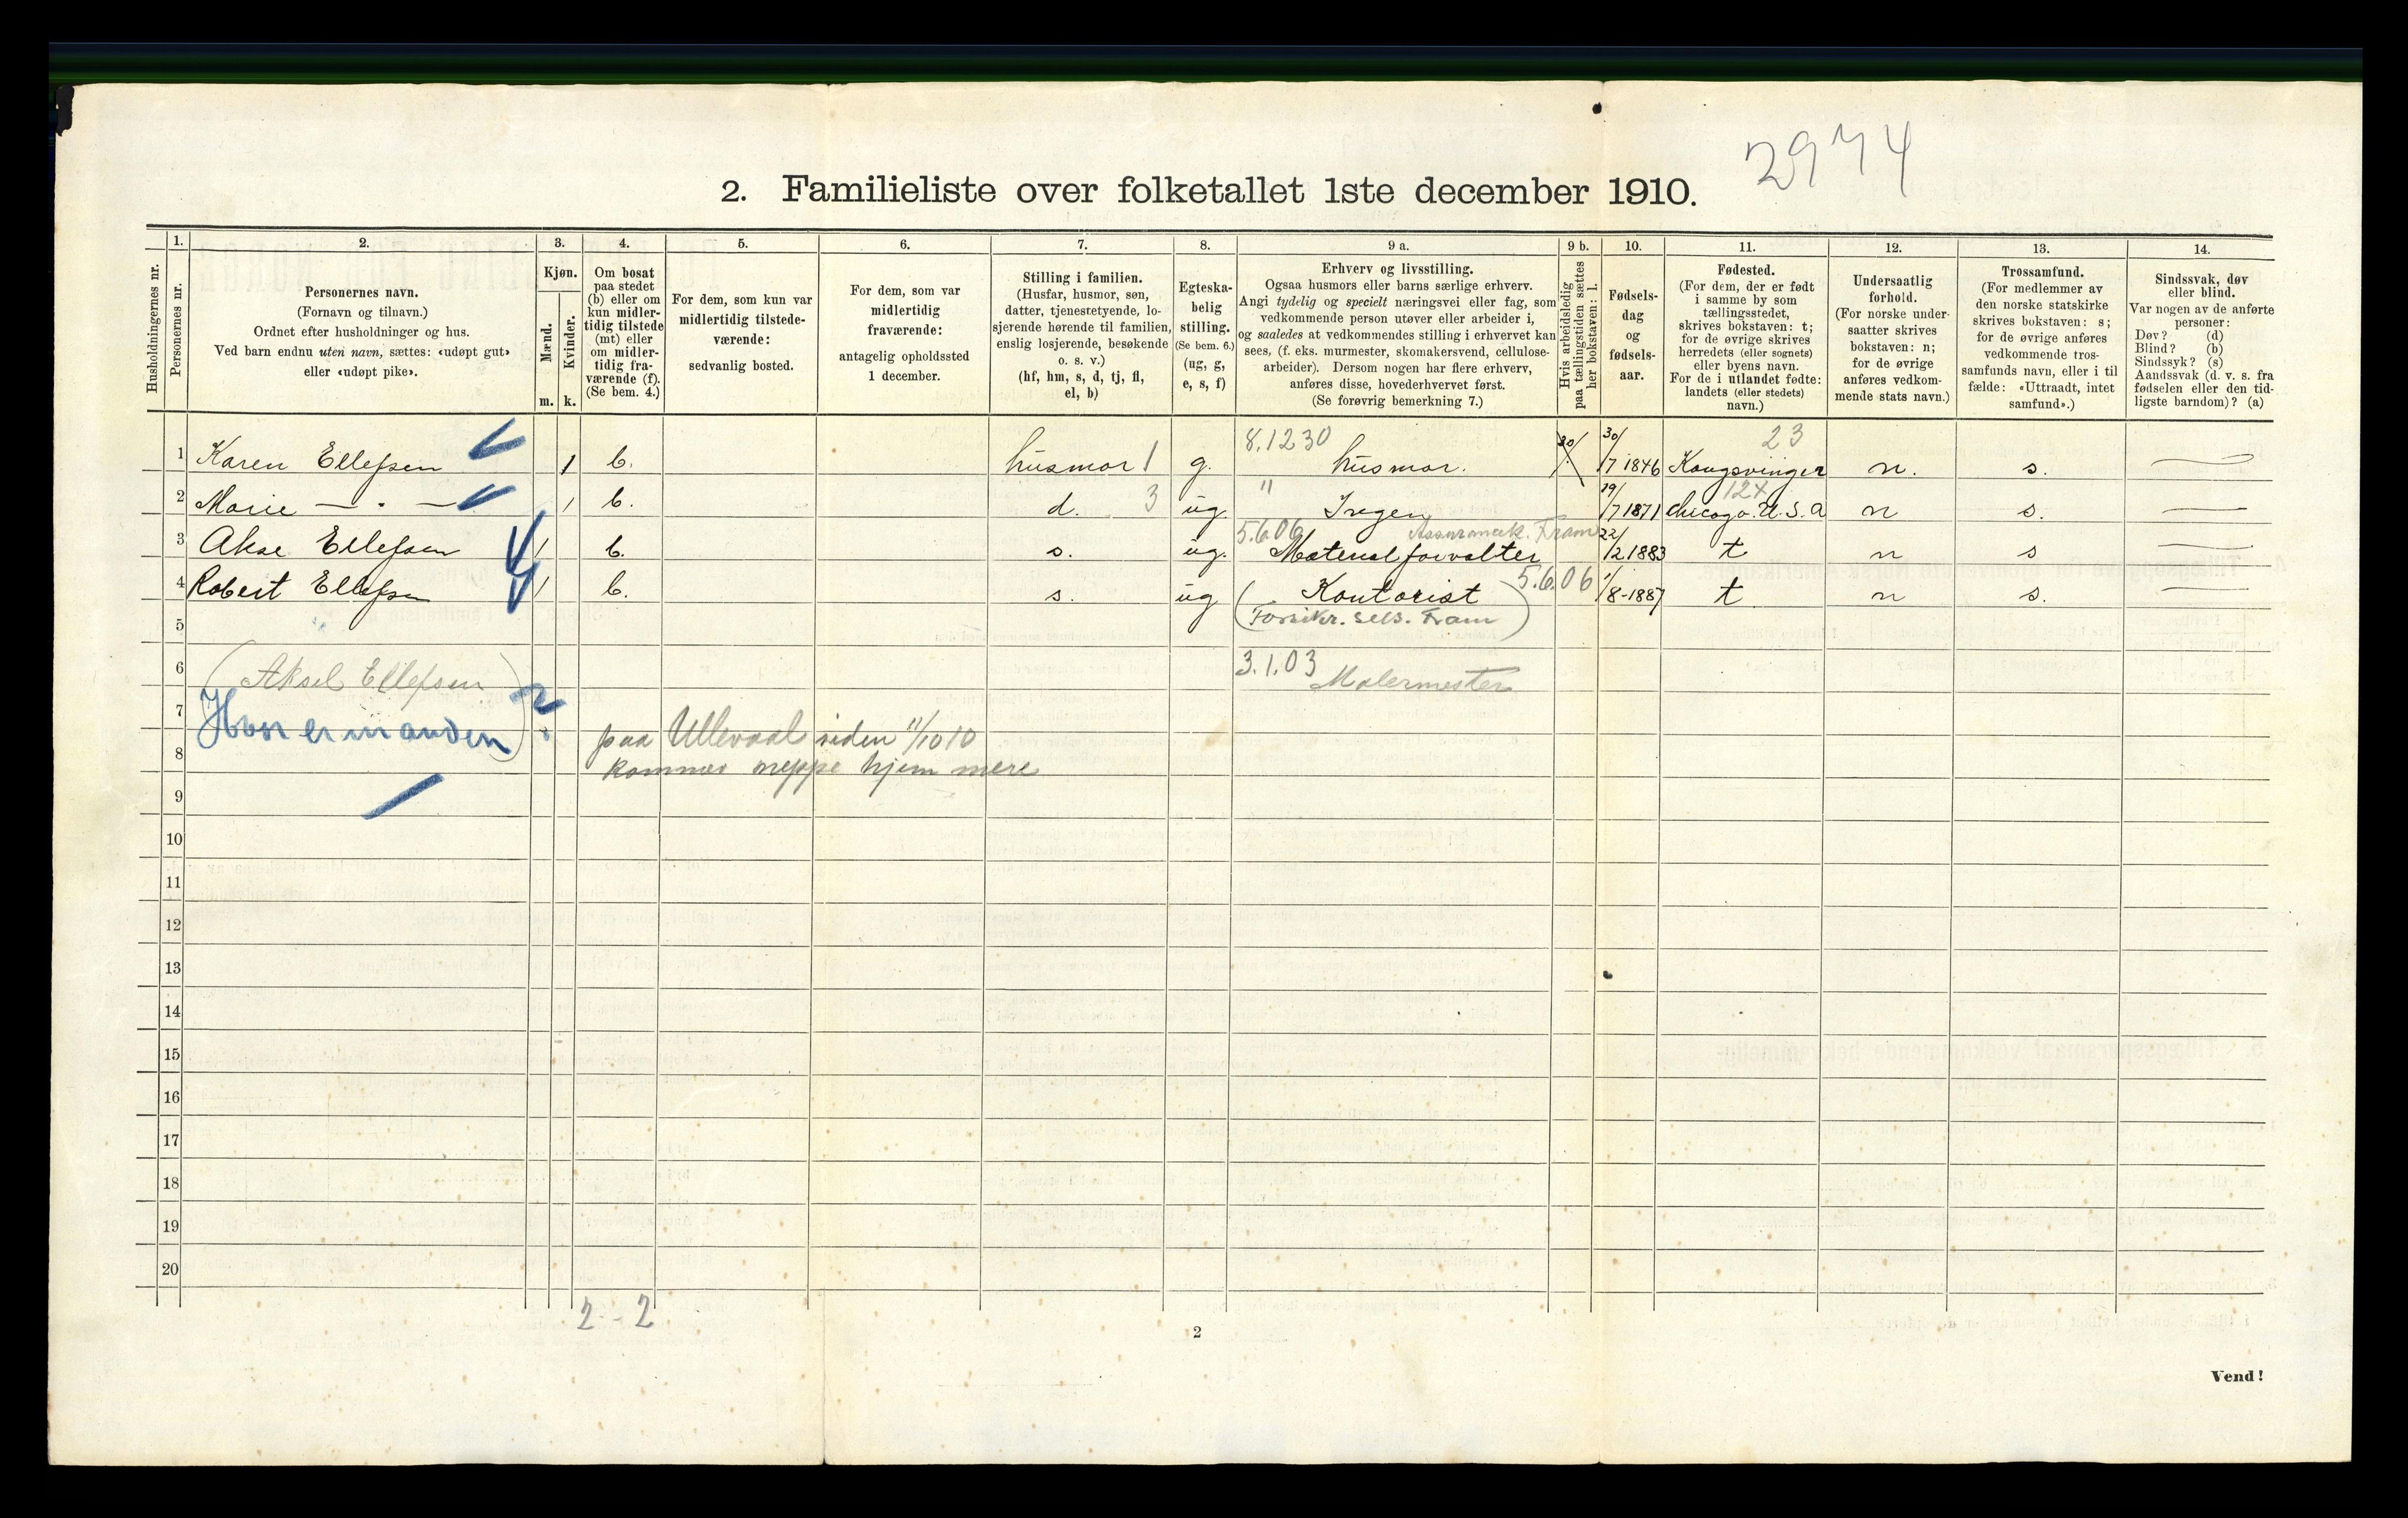 2974
2. Familieliste over folketallet 1ste december 1910.
Husholdningernes nr.
1. Personernes nr.
2. Personernes navn. (Fornavn og tilnavn.) Ordnet efter husholdninger og hus. Ved barn endnu uten navn, sættes: «udøpt gut» eller «udøpt pike».
3. Kjøn. Mænd. m. Kvinder. k.
4. Om bosat paa stedet (b) eller om kun midlertidig tilstede (mt) eller om midlertidig fraværende (f). (Se bem. 4.)
5. For dem, som kun var midlertidig tilstedeværende: sedvanlig bosted.
6. For dem, som var midlertidig fraværende: antagelig opholdssted 1 december.
7. Stilling i familien. (Husfar, husmor, søn, datter, tjenestetyende, losjerende hørende til familien, enslig losjerende, besøkende o. s. v.) (hf, hm, s, d, tj, fl, el, b)
8. Egteskabelig stilling. (Se bem. 6.) (ug, g, e, s, f)
9 a. Erhverv og livsstilling. Ogsaa husmors eller barns særlige erhverv. Angi tydelig og specielt næringsvei eller fag, som vedkommende person utøver eller arbeider i, og saaledes at vedkommendes stilling i erhvervet kan sees, (f. eks. murmester, skomakersvend, cellulosearbeider). Dersom nogen har flere erhverv, anføres disse, hovederhvervet først. (Se forøvrig bemerkning 7.)
9 b. Hvis arbeidsledig paa tællingstiden sættes her bokstaven: l.
10. Fødselsdag og fødselsaar.
11. Fødested. (For dem, der er født i samme by som tællingsstedet, skrives bokstaven: t; for de øvrige skrives herredets (eller sognets) eller byens navn. For de i utlandet fødte: landets (eller stedets) navn.)
12. Undersaatlig forhold. (For norske undersaatter skrives bokstaven: n; for de øvrige anføres vedkommende stats navn.)
13. Trossamfund. (For medlemmer av den norske statskirke skrives bokstaven: s; for de øvrige anføres vedkommende trossamfunds navn, eller i tilfælde: «Uttraadt, intet samfund».)
14. Sindssvak, døv eller blind. Var nogen av de anførte personer: Døv? (d) Blind? (b) Sindssyk? (s) Aandssvak (d. v. s. fra fødselen eller den tidligste barndom)? (a)
8.1230 23
1 Karen Ellefsen 1 b. husmor 1 g. husmor. 30/7 1846 Kongsvinger n. s.
" 12x
2 Marie — " — 1 b. d. 3 ug. Ingen 19/7 1871 Chicago. U.S.A n s.
5.6.06 Fram
3 Akse Ellefsen 1 b. s. ug. Materialforvalter 22/2 1883 t n s
4 Robert Ellefsen 1 b. s. ug (Kontorist 5.6.06 1/8-1887 t n s.
5 Forsikr. sels. Fram)
6 (Aksel Ellefsen) 3.1.03 Malermester
7 Hvor er manden?
8 paa Ullevaal siden 11/10 10
kommer neppe hjem mere
9
10
11
12
13
14
15
16
17
18
19
20
2 - 2
2
Vend!